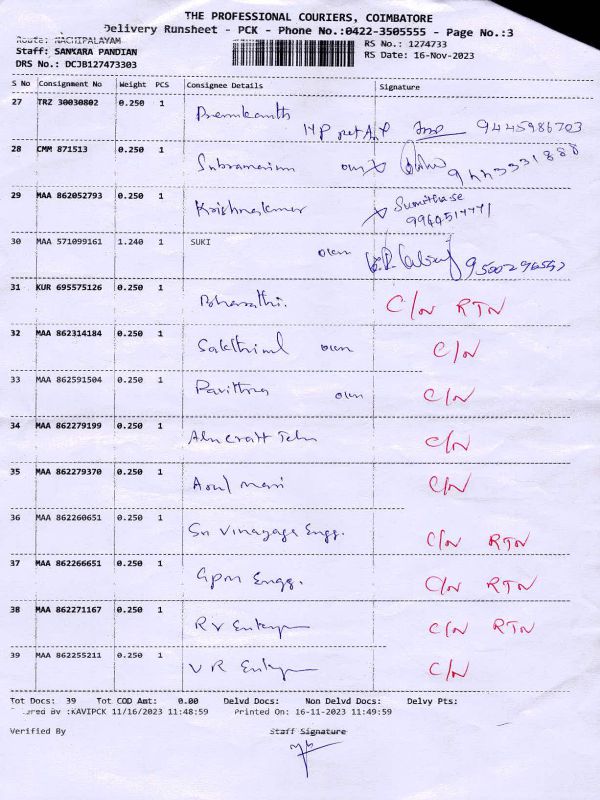 THE PROFESSIONAL COURIERS, COIMBATORE
Delivery Runsheet - PCK - Phone No.:0422-3505555 - Page No.:3
Route: NACHIPALAYAM
RS No.: 1274733
Staff: SANKARA PANDIAN
RS Date: 16-Nov-2023
DRS No.: DCJB127473303
S No Consignment No Weight PCS Consignee Details Signature
27 TRZ 30030802 0.250 1 Premkanth 9445986703
28 CMM 871513 0.250 1 Subramanium own 9443331888
29 MAA 862052793 0.250 1 Krishnakumar Sumithase
30 MAA 571099161 1.240 1 SUKI own 9500296552
31 KUR 695575126 0.250 1 Bharathi. C/N RTN
32 MAA 862314184 0.250 1 Sakthivel own C/N
33 MAA 862591504 0.250 1 Pavithra own C/N
34 MAA 862279199 0.250 1 C/N
35 MAA 862279370 0.250 1 Arul mani C/N
36 MAA 862260651 0.250 1 Sri Vinayaga Engg. C/N RTN
37 MAA 862266651 0.250 1 Gpm Engg. C/N RTN
38 MAA 862271167 0.250 1 RV C/N RTN
39 MAA 862255211 0.250 1 V R C/N
Tot Docs: 39 Tot COD Amt: 0.00 Delvd Docs: Non Delvd Docs: Delvy Pts:
:KAVIPCK 11/16/2023 11:48:59 Printed On: 16-11-2023 11:49:59
Verified By Staff Signature